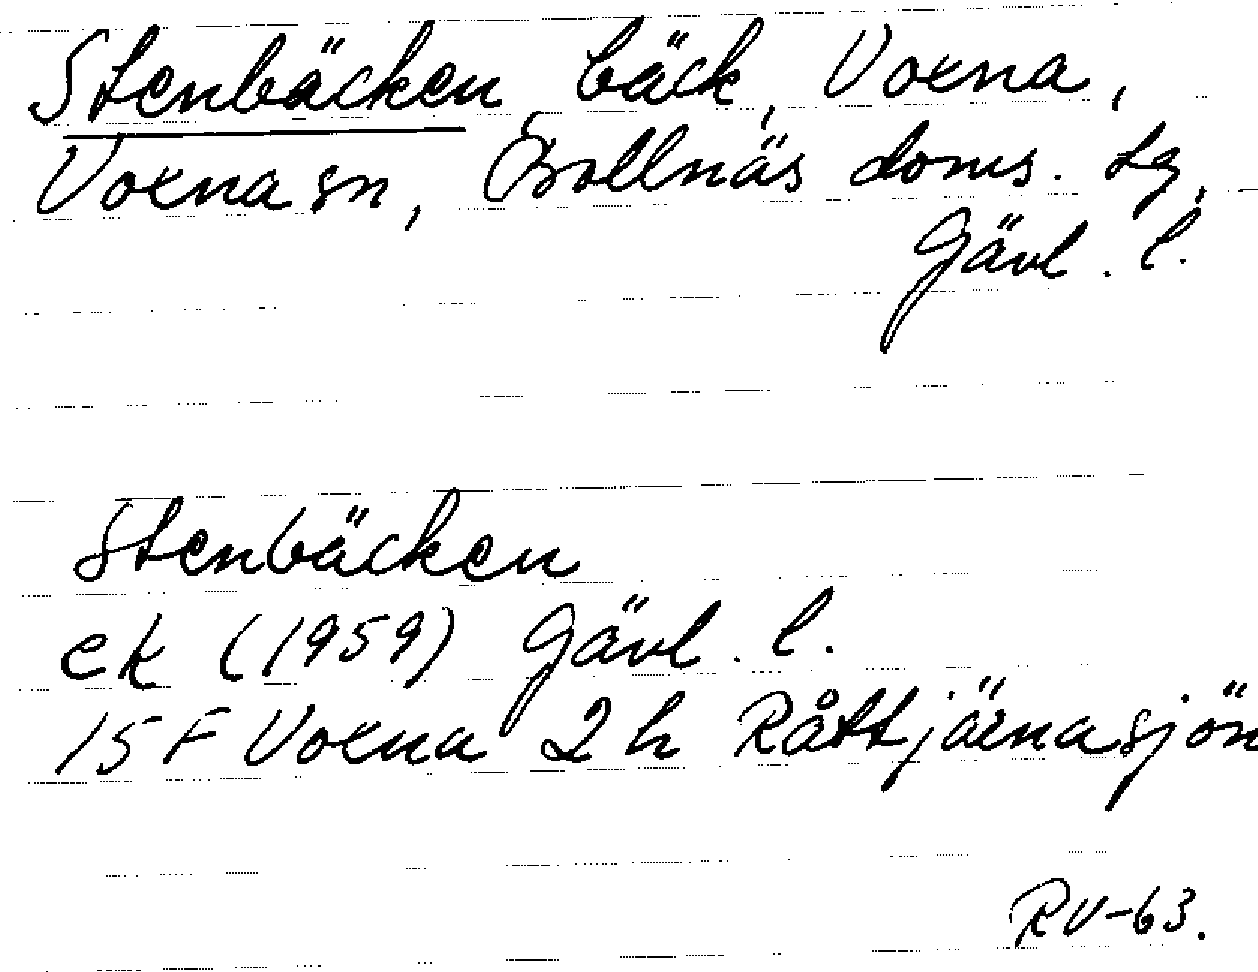 Stenbäcken, bäck, Voxna,
Voxna sn, Bollnäs doms. tg,
Gävl. l.
Stenbäcken
ek (1959) Gävl. l.
15 F Voxna 2 h Råttjärnasjön
RV-63.